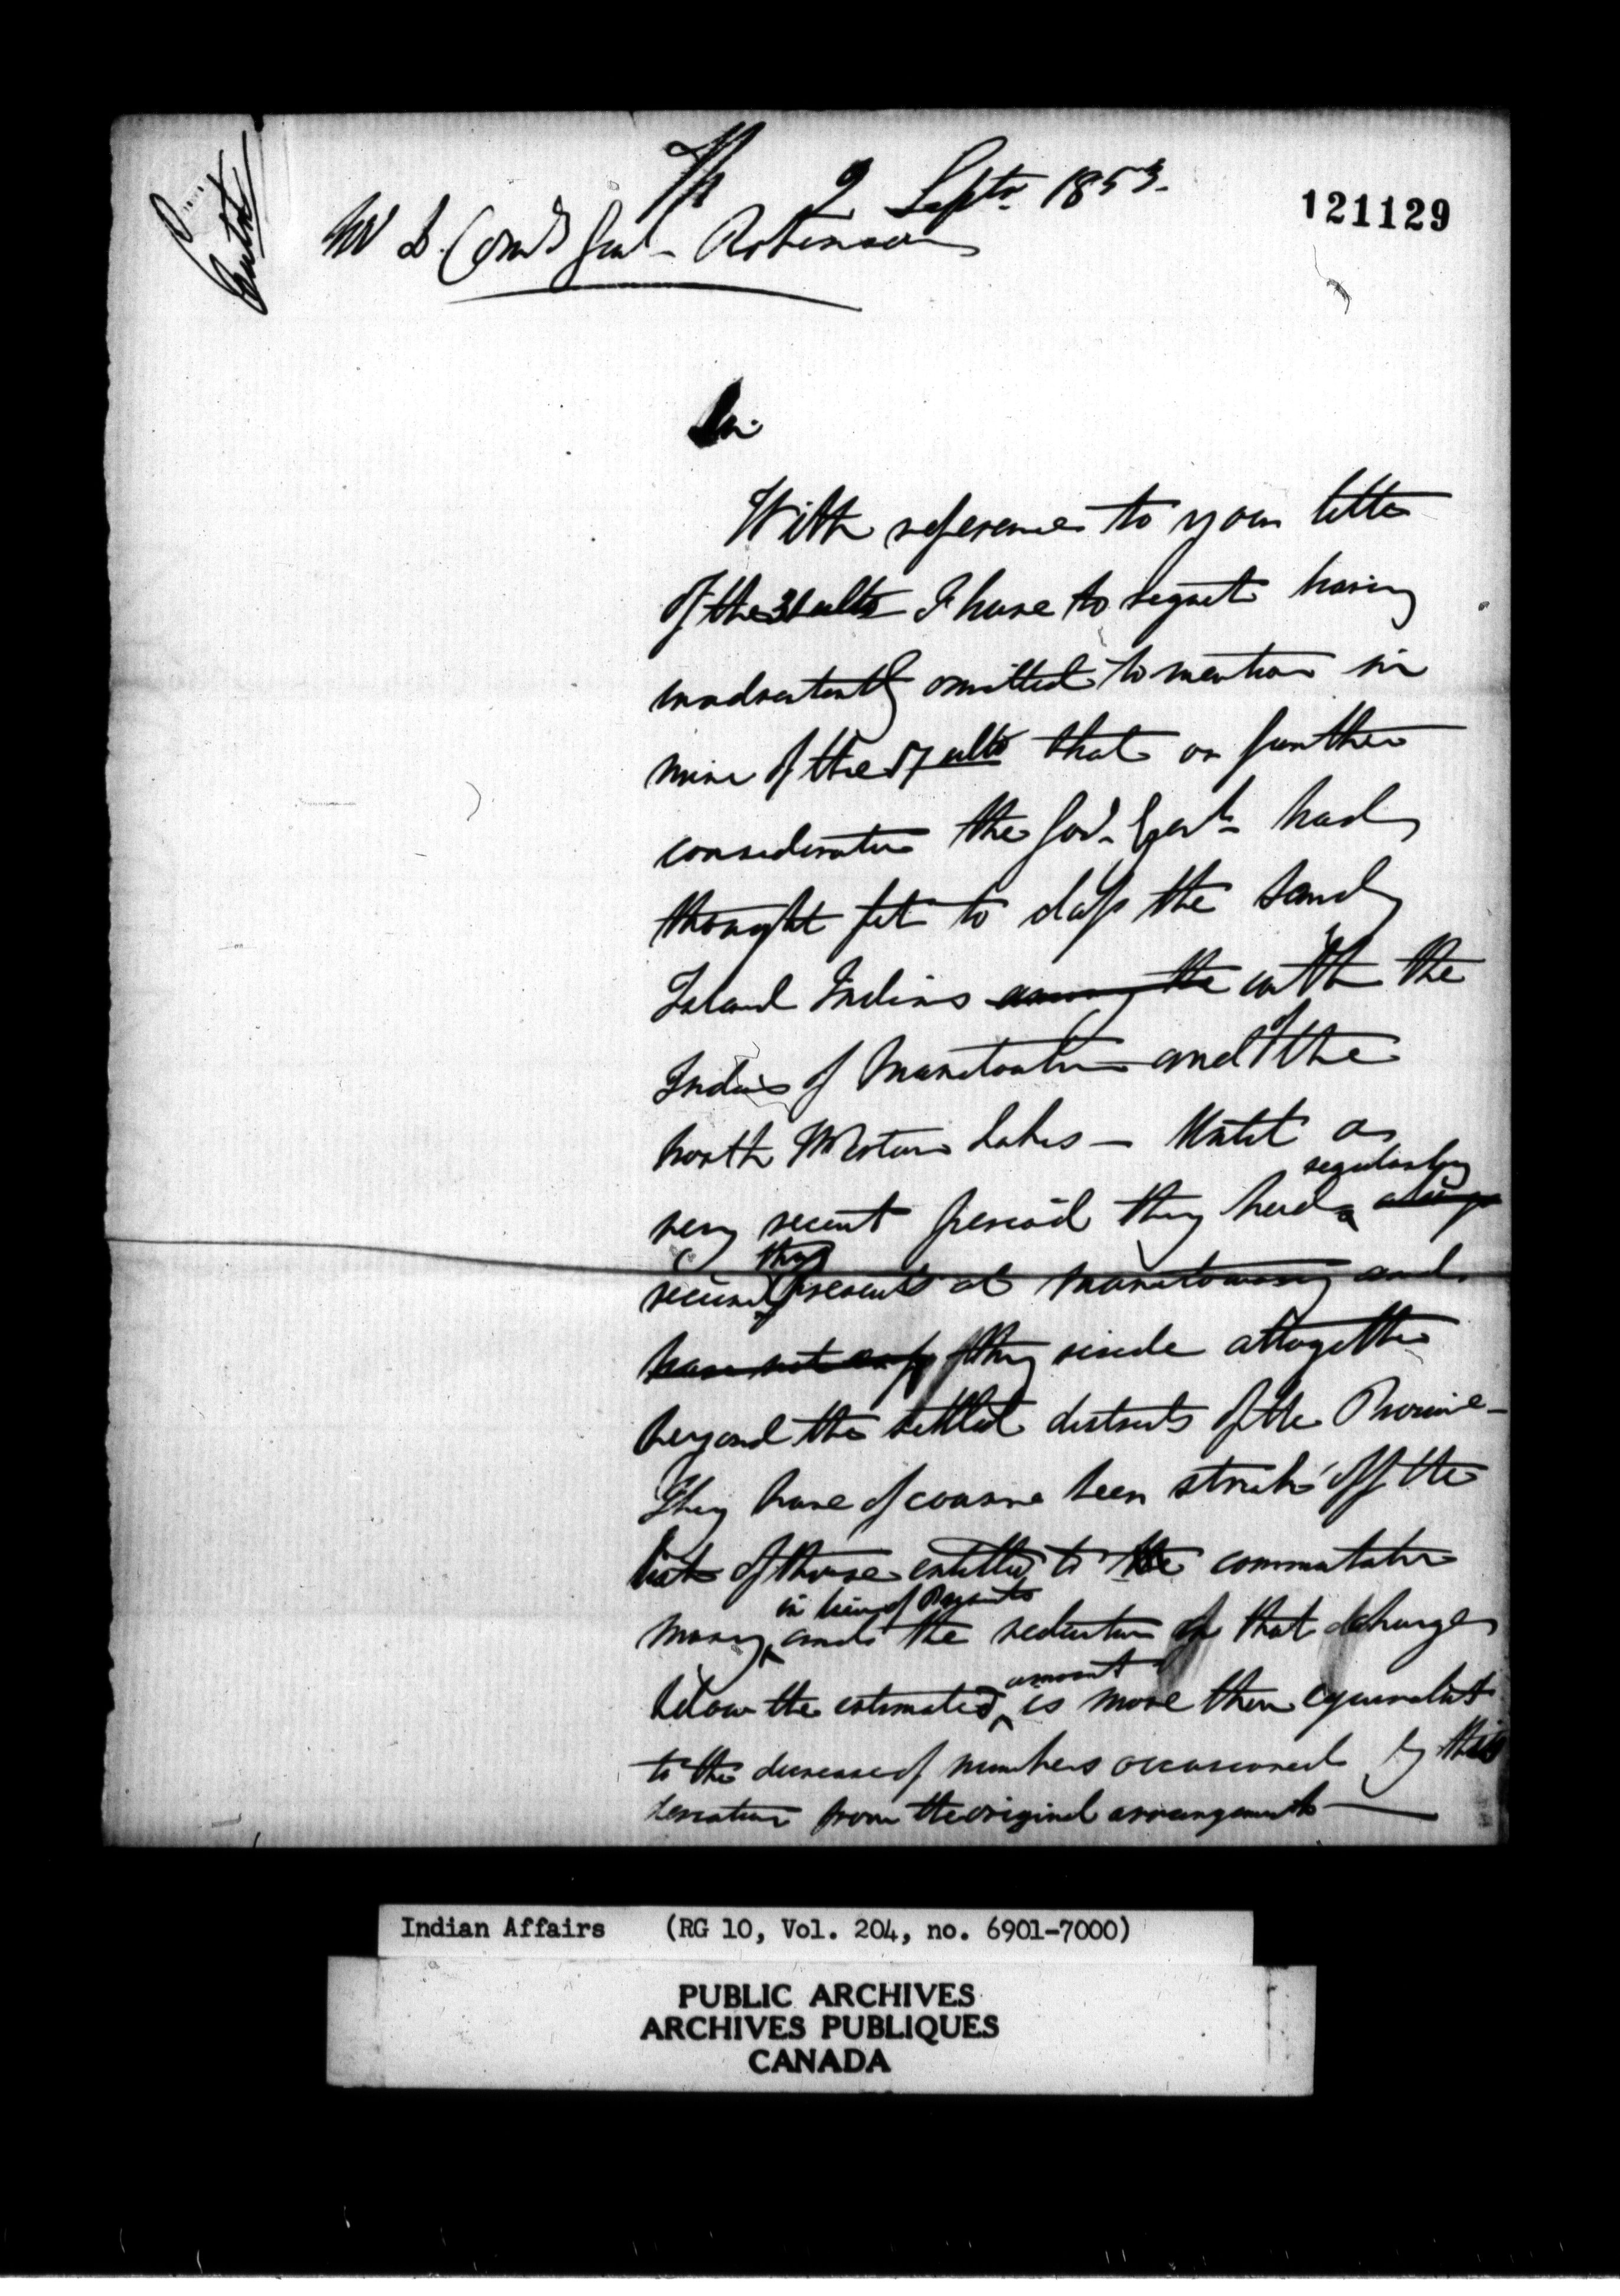 2 Septr 1853.
121129
Robinson
Sir
With reference to your letter
of the 31 ulto I have to regret having
inadvertently omitted to mention in
mine of the 17 ulto that on further
consideration the Gov. Genl. had
thought fit to class the Sandy
Island Indians among the with the
Indians of Manitoulin and of the
North Western Lakes — Until a
very recent period they had regularly always
received their presents at Manitowaning and
have not only they reside altogether
beyond the settled districts of the Province —
They have of course been struck off the
list of those entitled to the commutation
money in lieu of Presents and the reduction of that charge
below the estimated amount is more than equivalent
to the decrease of numbers occasioned by this
deviation from the original arrangements —
Indian Affairs (RG 10, Vol. 204, no. 6901-7000)
PUBLIC ARCHIVES
ARCHIVES PUBLIQUES
CANADA